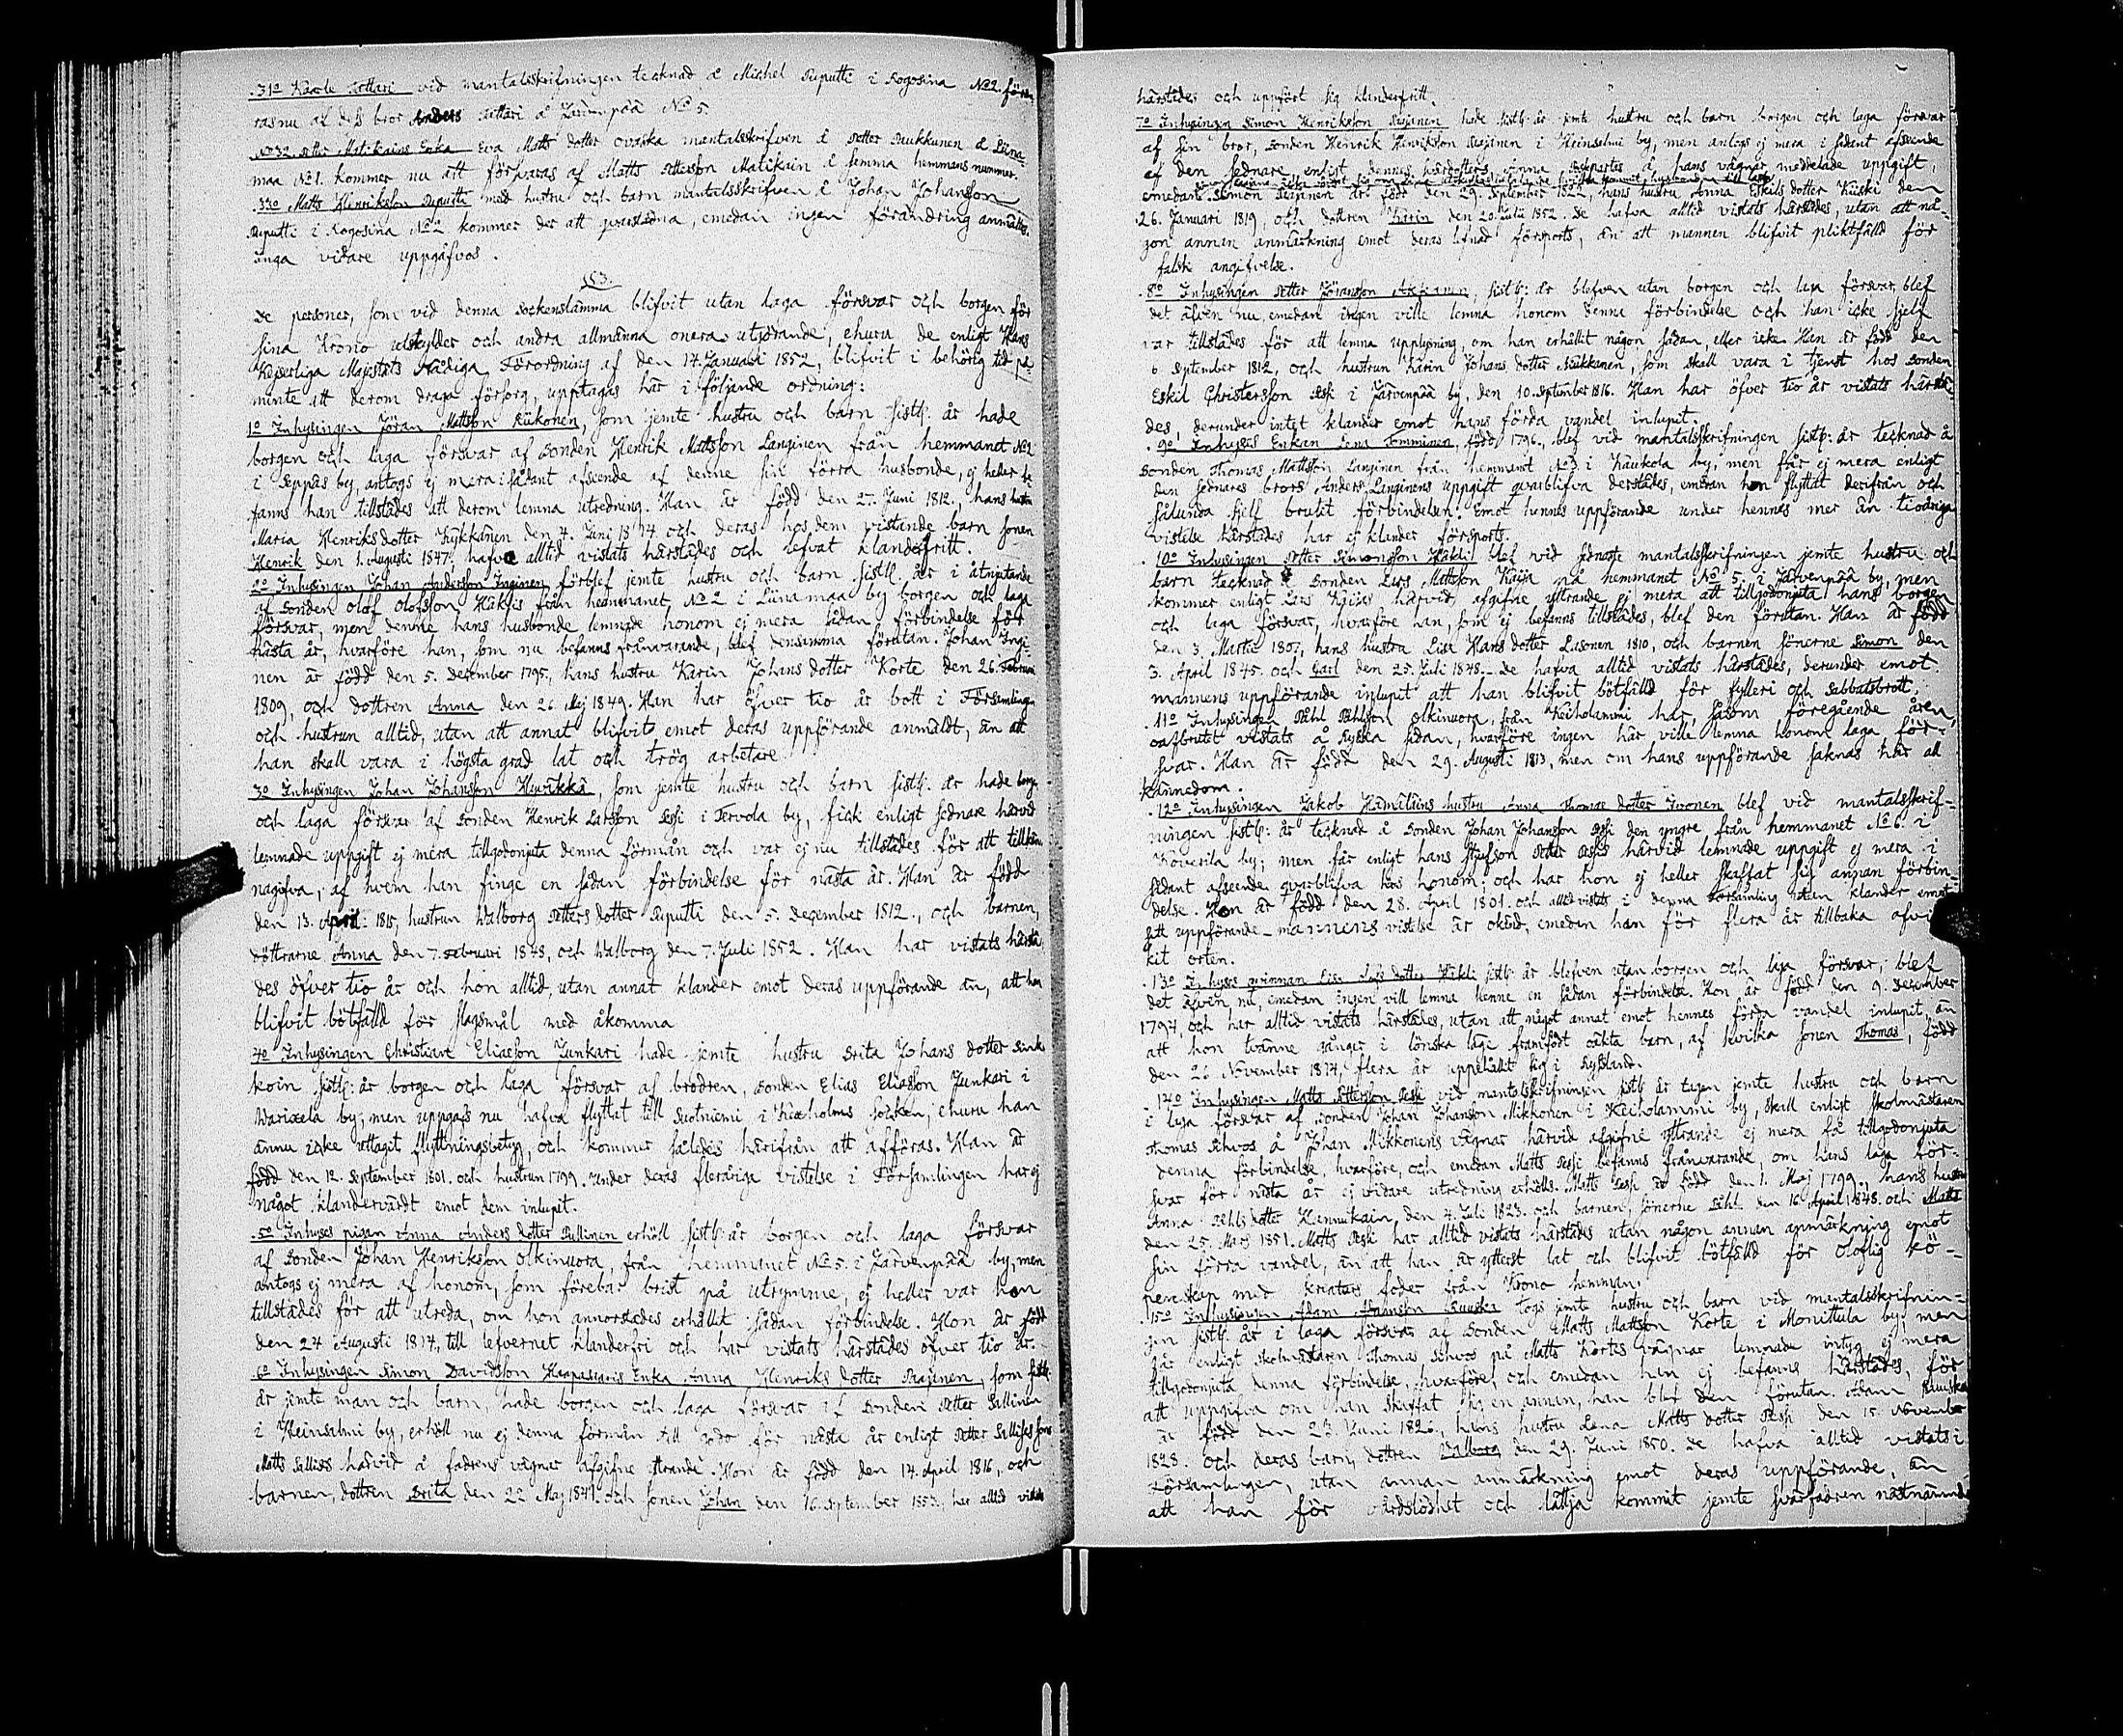 31o Kaarle Arttari vid mantalsskrifningen tecknad å Michel Puputti i Rogosina No 2 förs-
ras nu af dess bror Anders Arttari å Järvenpää No 5.
No 32. Petter Matikains Enka Eva Matts dotter Ovaska mantalsskrifven å Petter Paukkunen å Liina-
maa No 1. kommer nu att försvaras af Matts Pettersson Matikain å samma hemmans nummer.
33o Matts Henriksson Puputti med hustru och barn mantalsskrifven å Johan Johansson
Puputti i Rogosina No 2 kommer der att qvarstadna, emedan ingen förändring anmältes.
Inga vidare uppgåfvos.
§ 3.
De personer, som vid denna Sockenstämma blifvit utan laga försvar och borgen för
sina Krono utskylder och andra allmänna onera utgörande, ehuru de enligt Hans
Kejserliga Majestäts Nådiga Förordning af den 17. Januari 1852, blifvit i behörig tid på-
minte att derom draga försorg, upptagas här i följande ordning:
1o Inhysingen Jöran Mattsson Kiikonen, som jemte hustru och barn sistl. år hade
borgen och laga försvar af Bonden Henrik Mattsson Langinen från hemmanet No 2
i Seppäs by, antogs ej mera i sådant afseende af denne sin förra husbonde, ej heller be-
fanns han tillstädes att derom lemna utredning. Han är född den 27. Juni 1812., hans hustru
Maria Henriksdotter Kykkänen den 7. Juni 1814 och deras hos dem vistande barn sonen
Henrik den 1. Augusti 1847. hafva alltid vistats härstädes och lefvat klanderfritt.
2o Inhysingen Johan Andersson Inginen förblef jemte hustru och barn sistl. år i åtnjutande
af Bonden Olof Olofsson Käkis från hemmanet No 2 i Liinamaa by borgen och laga
försvar, men denne hans husbonde lemnade honom ej mera sådan förbindelse för
nästa år, hvarföre han, som nu befanns frånvarande, blef densamma förutan. Johan Ingi-
nen är född den 5. December 1795., hans hustru Karin Johans dotter Korte den 26. Februari
1809, och dottren Anna den 26 Maj 1849. Han har öfver tio år bott i Församlingen
och hustrun alltid, utan att annat blifvit emot deras uppförande anmäldt, än att
han skall vara i högsta grad lat och trög arbetare.
3o Inhysingen Johan Johansson Heuikka, som jemte hustru och barn sistl. år hade borgen
och laga försvar af Bonden Henrik Larsson Pessi i Tervola by, fick enligt sednares härvid
lemnade uppgift ej mera tillgodonjuta denna förmån och var ej nu tillstädes för att tillkän-
nagifva, af hvem han finge en sådan förbindelse för nästa år. Han är född
den 13. April 1815, hustrun Walborg Petters dotter Puputti den 5. December 1812., och barnen,
döttrarne Anna den 7. Februari 1848, och Walborg den 7. Juli 1852. Han har vistats härstä-
des öfver tio år och hon alltid, utan annat klander emot deras uppförande än, att han
blifvit bötfälld för slagsmål med åkomma
4o Inhysingen Christian Eliasson Junkari hade jemte hustru Brita Johans dotter Sink-
koin sistl. år borgen och laga försvar af brodren, Bonden Elias Eliasson Junkari i
by, men uppgafs nu hafva flyttat till Suotniemi i Kexholms Socken, ehuru han
ännu icke uttagit flyttningsbetyg, och kommer således härifrån att afföras. Han är
född den 12. September 1801. och hustrun 1799. Under deras fleråriga vistelse i Församlingen har ej
något klandervärdt emot dem inlupit.
5o Inhyses pigan Anna Anders dotter Pullinen erhöll sistl. år borgen och laga försvar
af Bonden Johan Henriksson Olkinuora, från hemmanet No 5. i Järvenpää by, men
antogs ej mera af honom, som förebar brist på utrymme, ej heller var hon
tillstädes för att utreda, om hon annorstädes erhållit sådan förbindelse. Hon är född
den 24 Augusti 1817., till lefvernet klanderfri och har vistats härstädes öfver tio år.
6o Inhysingen Simon Davidsson Haapasaaris Enka Anna Henriks dotter Paajanen, som sistl.
år jemte man och barn, hade borgen och laga försvar af Bonden Petter Sallinen
i Heinsalmi by, erhöll nu ej denna förmån till godo för nästa år enligt Petter Sallises sons
Matts Sallises härvid å fadrens vägnar afgifne yttrande. Hon är född den 14. April 1816, och
barnen, dottren Brita den 22 Maj 1847. och sonen Johan den 16. September 1852, har alltid vistats
härstädes och uppfört sig klanderfritt.
7o Inhysingen Simon Henriksson Paajanen hade sistl. år jemte hustru och barn borgen och laga försvar
af sin bror, Bonden Henrik Henriksson Paajanen i Heinsalmi by, men antogs ej mera i sådant afseende
af den sednare enligt dennes Anna å hans vägnar meddelade uppgift,
emedan Simon Paajanen är född den 29. September 1822, hans hustru Anna Eskils dotter Kiiski den
26. Januari 1819, och dottren Karin den 20. Juli 1852. De hafva alltid vistats härstädes, utan att nå-
gon annan anmärkning emot deras lefnad försports, än att mannen blifvit pliktfälld för
falsk angifvelse.
8o Inhysingen Petter Jöransson Akkanen, sistl. år blefven utan borgen och laga försvar, blef
det äfven nu, emedan ingen ville lemna honom denna förbindelse och han icke sjelf
var tillstädes för att lemna upplysning, om han erhållit någon sådan, eller icke. Han är född den
6. September 1812, och hustrun Karin Johans dotter Paukkunen, som skall vara i tjenst hos Bonden
Eskil Christersson Pessi i Järvenpää by, den 10. September 1816. Han har öfver tio år vistats härstä-
des, derunder intet klander emot hans förda vandel inlupit.
9o Inhyses Enkan Lena Tomminen, född 1796., blef vid mantalsskrifningen sistl. år tecknad å
Bonden Thomas Mattsson Langinen från hemmanet No 3 i Kaukola by, men får ej mera enligt
den sednares brors Anders Langinens uppgift qvarblifva derstädes, emedan hon flyttat derifrån och
sålunda sjelf brutit förbindelsen. Emot hennes uppförande under hennes mer än tioåriga
vistelse härstädes har ej klander försports.
10o Inhysingen Petter Simonsson Häkli blef vid sednaste mantalsskrifningen jemte hustru och
barn tecknad å Bonden Lars Mattsson Kaija på hemmanet No 5. i Järvenpää by, men
kommer enligt Lars Kaijas härvid afgifne yttrande ej mera att tillgodonjuta hans borgen
och laga försvar, hvarföre han, som ej befanns tillstädes, blef den förutan. Han är född
den 3. Martii 1807, hans hustru Lisa Hans dotter Lasonen 1810, och barnen sönerne Simon den
3. April 1845 och Carl den 25. Juli 1848. De hafva alltid vistats härstädes, derunder emot
mannens uppförande inlupit att han blifvit bötfälld för fylleri och Sabbatsbrott.
11o Inhysingen Påhl Påhlsson Olkinuora, från Keiholammi har, såsom föregående åren,
oafbrutet vistats å Ryska sidan, hvarföre ingen här ville lemna honom laga för-
svar. Han är född den 29. Augusti 1813, men om hans uppförande saknas här all
kännedom.
12o Inhysingen Jakob Hämäläins hustru Anna Thomas dotter Ivonen blef vid mantalsskrif-
ningen sistl. år tecknad å Bonden Johan Johansson Pessi den yngre från hemmanet No 6. i
Koverila by; men får enligt hans styfson Petter Pessis härvid lemnade uppgift ej mera i
sådant afseende qvarblifva hos honom; och har hon ej heller skaffat sig annan förbin-
delse. Hon är född den 28. April 1801. och alltid vistats i denna Församling utan klander emot
sitt uppförande – mannens vistelse är okänd, emedan han för flera år tillbaka afvi-
kit orten.
13o Inhyses qvinnan Lisa dotter Häkli sistl. år blefven utan borgen och laga försvar, blef
det äfven nu, emedan ingen vill lemna henne en sådan förbindelse. Hon är född den 9. December
1794, och har alltid vistats härstädes, utan att något annat emot hennes förda vandel inlupit, än
att hon tvänne gånger i lönska läge framfödt oäkta barn, af hvilka sonen Thomas, född
den 26 November 1817, flera år uppehållit sig i Ryssland.
14o Inhysingen Matts Pettersson Pessi vid mantalsskrifningen sistl. år tagen jemte hustru och barn
i laga försvar af Bonden Johan Johansson Mikkonen i Keiholammi by, skall enligt Skolmästaren
Thomas Sihvos å Johan Mikkonens vägnar härvid afgifne yttrande ej mera få tillgodonjuta
denna förbindelse, hvarföre, och emedan Matts Pessi befanns frånvarande, om hans laga för-
svar för nästa år ej vidare utredning erhölls. Matts Pessi är född den 1. Maj 1799., hans hustru
Anna Påhls dotter Hannikain, den 7. Juli 1823. och barnen, sönerne Påhl den 16 April 1848. och Matts
den 25. Mars 1851. Matts Pessi har alltid vistats härstädes utan någon annan anmärkning emot
sin förra vandel, än att han är ytterst lat och blifvit bötfälld för oloflig kö-
penskap med kreaturs foder från Krono hemman.
15o Inhysingen Adam Adamsson Ruuska togs jemte hustru och barn vid mantalsskrifnin-
gen sistl. år i laga försvar af Bonden Matts Mattsson Korte i Monittula by; men
får enligt skolmästaren Thomas Sihvos på Matts Kortes vägnar lemnade intyg ej mera
tillgodonjuta denna förbindelse, hvarföre, och emedan han ej befanns härstädes, för
att uppgifva om han skaffat sig en annan, han blef den förutan. Adam Ruuska
är född den 23. Juni 1826, hans hustru Lena Matts dotter Pessi den 15. November
1828. och deras barn, dottren Walborg den 29. Juni 1850. De hafva alltid vistats i
Församlingen, utan annan anmärkning emot deras uppförande, än
att han för vårdslöshet och lättja kommit jemte svärfadren nästnämnde